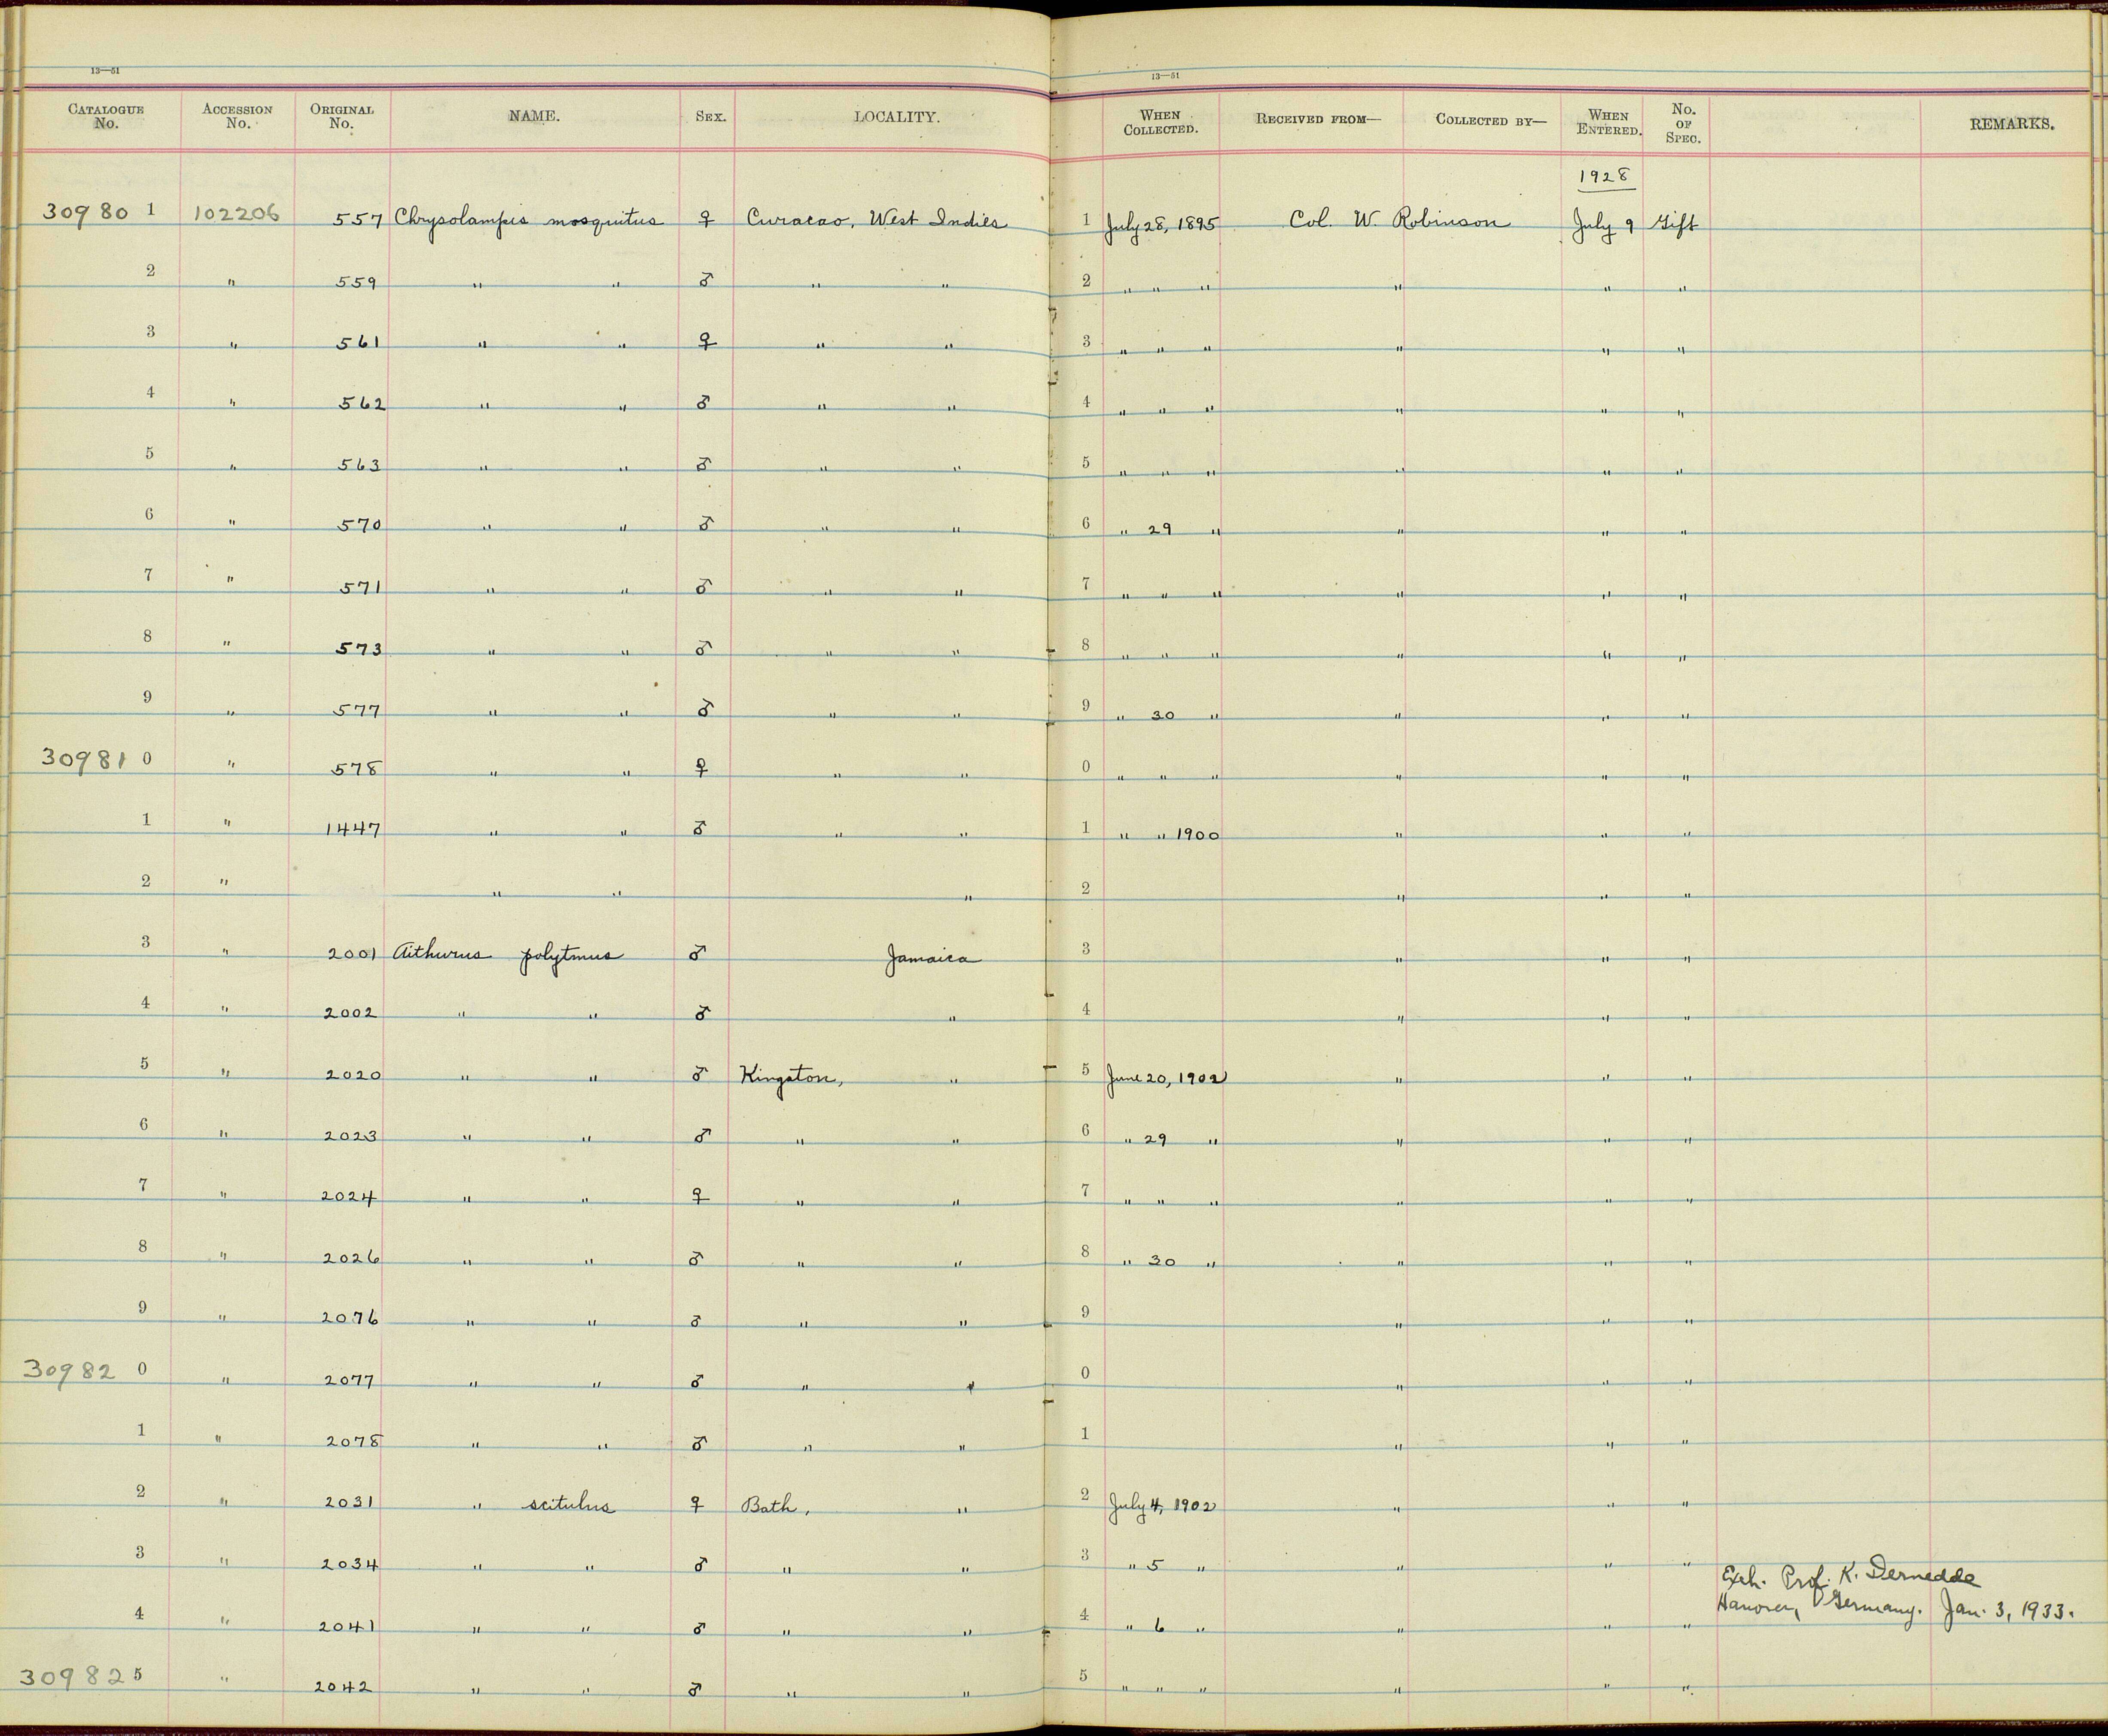 13—51 13—51
CATALOGUE No. ACCESSION No. ORIGINAL No. NAME. SEX. LOCALITY. WHEN COLLECTED. RECEIVED FROM— COLLECTED BY— WHEN ENTERED. No. OF SPEC. REMARKS.
1928
30980 1 102206 557 Chrysolampis mosquitus ♀ Curacao, West Indies 1 July 28, 1895 Col. W. Robinson July 9 Gift
2 " 559 " " ♂ " " 2 " " " " " "
3 " 561 " " ♀ " " 3 " " " " " "
4 " 562 " " ♂ " " 4 " " " " " "
5 " 563 " " ♂ " " 5 " " " " " "
6 " 570 " " ♂ " " 6 " 29 " " " "
7 " 571 " " ♂ " " 7 " " " " " "
8 " 573 " " ♂ " " 8 " " " " " "
9 " 577 " " ♂ " " 9 " 30 " " " "
30981 0 " 578 " " ♀ " " 0 " " " " " "
1 " 1447 " " ♂ " " 1 " " 1900 " " "
2 " " " " 2 " " "
3 " 2001 Aithurus polytmus ♂ Jamaica 3 " " "
4 " 2002 " " ♂ " 4 " " "
5 " 2020 " " ♂ Kingston, " 5 June 20, 1902 " " "
6 " 2023 " " ♂ " " 6 " 29 " " " "
7 " 2024 " " ♀ " " 7 " " " " " "
8 " 2026 " " ♂ " " 8 " 30 " " " "
9 " 2076 " " ♂ " " 9 " " "
30982 0 " 2077 " " ♂ " " 0 " " "
1 " 2078 " " ♂ " " 1 " " "
2 " 2031 " scitulus ♀ Bath, " 2 July 4, 1902 " " "
3 " 2034 " " ♂ " " 3 " 5 " " " "
Exch. Prof. K. Dernedde
Hanover, Germany. Jan. 3, 1933.
4 " 2041 " " ♂ " " 4 " 6 " " " "
30982 5 " 2042 " " ♂ " " 5 " " " " " "